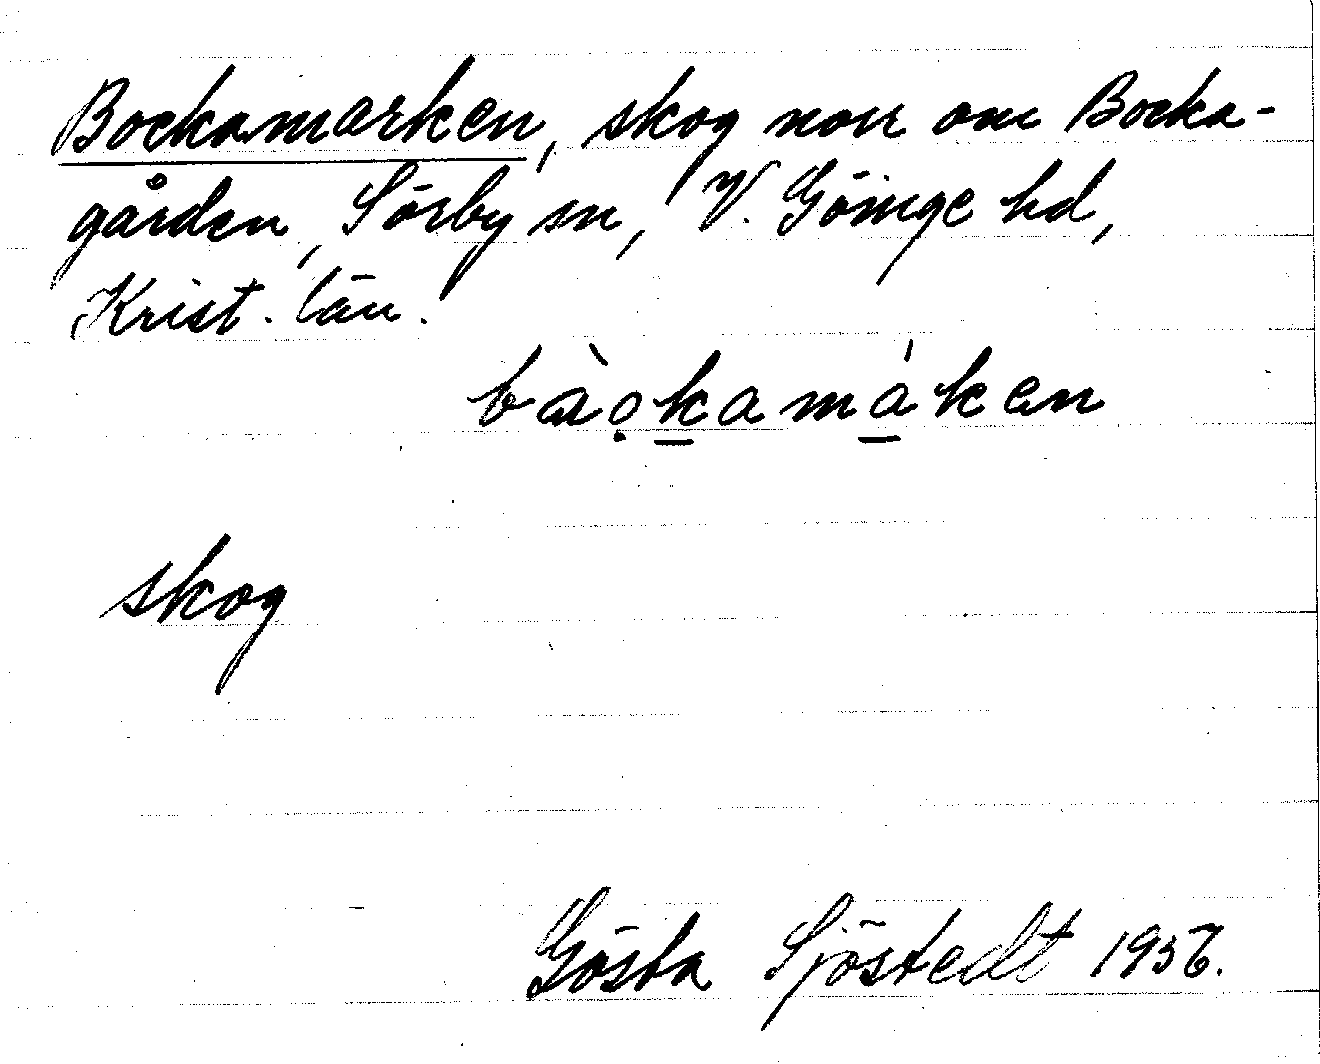 Bockamarken, skog norr om Bocka-
gården, Sörby sn, V. Göinge hd,
Krist. län.
bàọk̲amá̲ken
skog
Gösta Sjöstedt 1936.